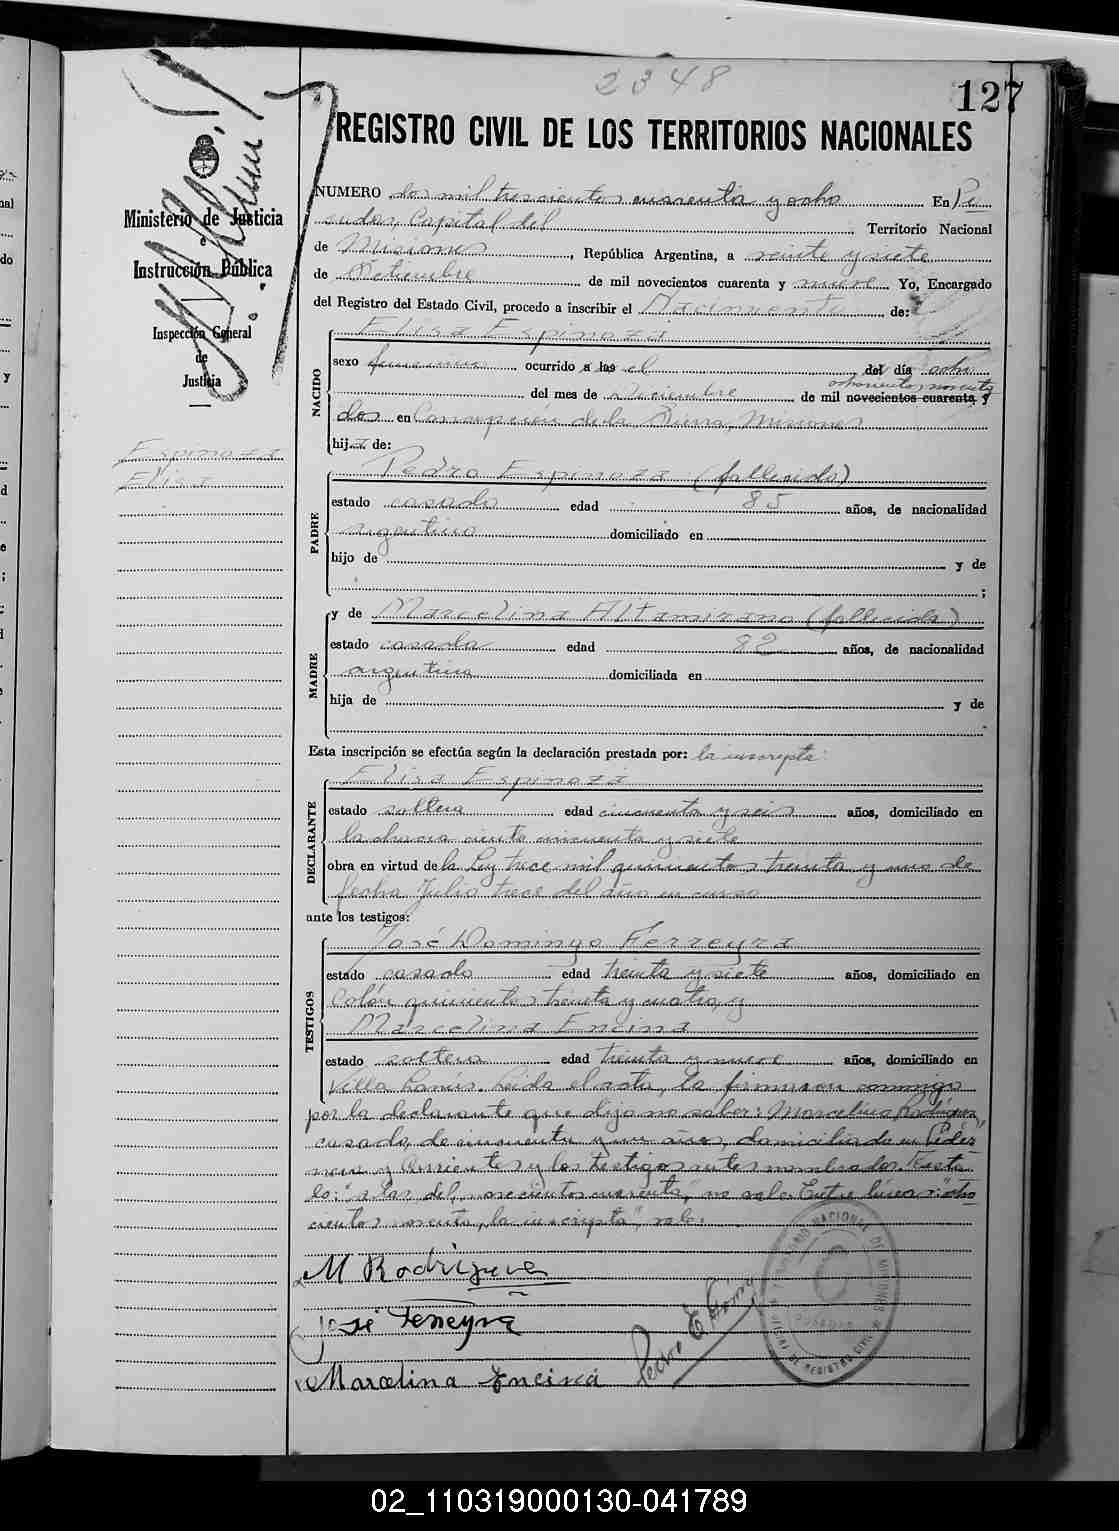 2348
127
REGISTRO CIVIL DE LOS TERRITORIOS NACIONALES
Ministerio de Justicia
e
Instrucción Pública
Inspección General
de
Justicia
Espinoza
Elisa
NUMERO dos mil trescientos cuarenta y ocho En Po
sadas, Capital del Territorio Nacional
de Misiones, República Argentina, a veinte y siete
de Setiembre de mil novecientos cuarenta y nueve Yo, Encargado
del Registro del Estado Civil, procedo a inscribir el Nacimiento de:
Elisa Espinoza
NACIDO
sexo femenino ocurrido a las el del día ocho
ochocientos noventa
del mes de Diciembre de mil novecientos cuarenta y
dos en Concepción de la Sierra, Misiones
hija de:
Pedro Espinoza (fallecido)
PADRE
estado casado edad 85 años, de nacionalidad
argentino domiciliado en
hijo de y de
;
y de Marcelina Altamirano (fallecida)
MADRE
estado casada edad 82 años, de nacionalidad
argentina domiciliada en
hija de y de
Esta inscripción se efectúa según la declaración prestada por: la inscripta:
Elisa Espinoza
DECLARANTE
estado soltera edad cincuenta y seis años, domiciliado en
la chacra ciento cincuenta y siete
obra en virtud de la Ley trece mil quinientos treinta y uno de
fecha Julio trece del año en curso
ante los testigos:
José Domingo Ferreyra
TESTIGOS
estado casado edad treinta y siete años, domiciliado en
Colón quinientos treinta y cuatro, y
Marcelina Encina
estado soltera edad treinta y nueve años, domiciliado en
Villa Lanús. Leida el acta, la firmaron conmigo
por la declarante que dijo no saber: Marcelino Rodríguez,
casado, de cincuenta y un años, domiciliado en
y Corrientes y los testigos antes nombrados. Testa
do: "a las del, novecientos cuarenta," no vale. Entre lineas: "ocho
cientos noventa, la inscripta", vale.
M Rodriguez
José Ferreyra
Marcelina Encina
Pedro E.
TERRITORIO NACIONAL DE MISIONES
POSADAS
DE REGISTRO CIVIL
02_110319000130-041789